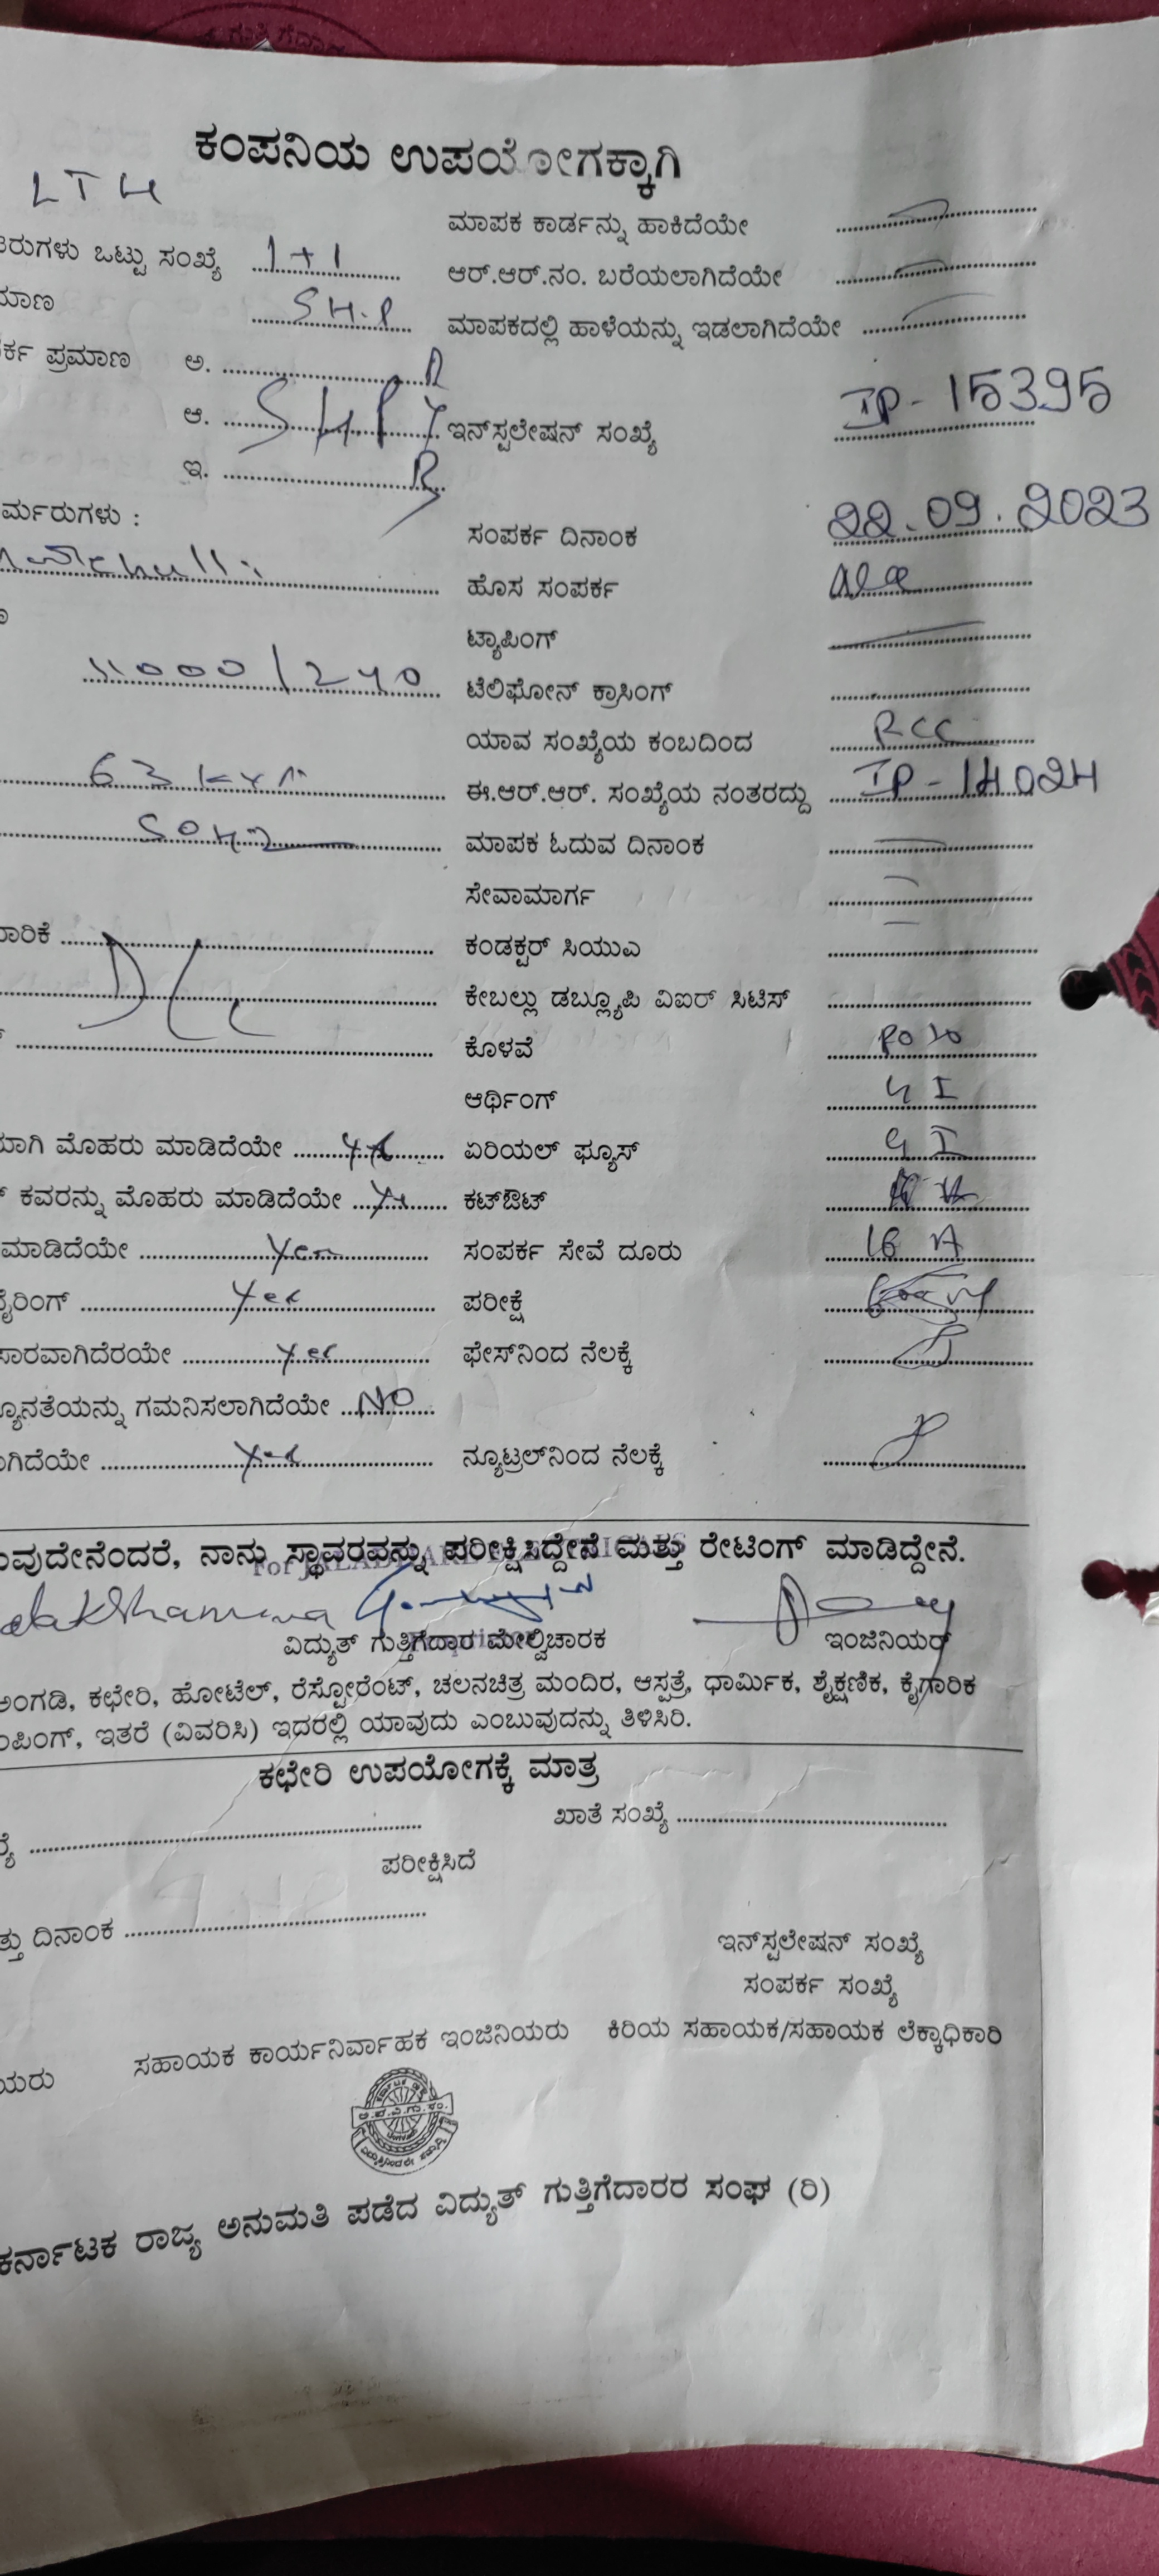 ಕಂಪನಿಯ ಉಪಯೋಗಕ್ಕಾಗಿ
LT4
ಮಾಪಕ ಕಾರ್ಡನ್ನು ಹಾಕಿದೆಯೇ
ರುಗಳು ಒಟ್ಟು ಸಂಖ್ಯೆ 1+1 ಆರ್.ಆರ್.ನಂ. ಬರೆಯಲಾಗಿದೆಯೇ
ಮಾಣ 5H.P ಮಾಪಕದಲ್ಲಿ ಹಾಳೆಯನ್ನು ಇಡಲಾಗಿದೆಯೇ
ರ್ಕ ಪ್ರಮಾಣ ಅ. R
ಆ. 5HP Y ಇನ್‌ಸ್ಟಲೇಷನ್ ಸಂಖ್ಯೆ IP-15395
ಇ. B
ರ್ಮರುಗಳು :
ಸಂಪರ್ಕ ದಿನಾಂಕ 22.09.2023
ಹೊಸ ಸಂಪರ್ಕ
ಟ್ಯಾಪಿಂಗ್
11000/240 ಟೆಲಿಫೋನ್ ಕ್ರಾಸಿಂಗ್
ಯಾವ ಸಂಖ್ಯೆಯ ಕಂಬದಿಂದ RCC
63 KVA ಈ.ಆರ್.ಆರ್. ಸಂಖ್ಯೆಯ ನಂತರದ್ದು IP-14024
50HZ ಮಾಪಕ ಓದುವ ದಿನಾಂಕ
ಸೇವಾಮಾರ್ಗ
ಾರಿಕೆ ಕಂಡಕ್ಟರ್ ಸಿಯುಎ
ಕೇಬಲ್ಲು ಡಬ್ಲ್ಯೂಪಿ ವಿಐರ್ ಸಿಟಿಸ್
ಕೊಳವೆ
ಆರ್ಥಿಂಗ್ GI
ಯಾಗಿ ಮೊಹರು ಮಾಡಿದೆಯೇ ಏರಿಯಲ್ ಫ್ಯೂಸ್ GI
ಕವರನ್ನು ಮೊಹರು ಮಾಡಿದೆಯೇ ಕಟ್‌ಔಟ್
ಮಾಡಿದೆಯೇ Yes ಸಂಪರ್ಕ ಸೇವೆ ದೂರು 16 A
ೈರಿಂಗ್ Yes ಪರೀಕ್ಷೆ
ಸಾರವಾಗಿದೆರಯೇ Yes ಫೇಸ್‌ನಿಂದ ನೆಲಕ್ಕೆ
ಯೂನತೆಯನ್ನು ಗಮನಿಸಲಾಗಿದೆಯೇ NO
ಗಿದೆಯೇ Yes ನ್ಯೂಟ್ರಲ್‌ನಿಂದ ನೆಲಕ್ಕೆ
ುವುದೇನೆಂದರೆ, ನಾನು ಸ್ಥಾವರವನ್ನು ಪರೀಕ್ಷಿಸಿದ್ದೇನೆ ಮತ್ತು ರೇಟಿಂಗ್ ಮಾಡಿದ್ದೇನೆ.
For
ವಿದ್ಯುತ್ ಗುತ್ತಿಗೆದಾರ ಮೇಲ್ವಿಚಾರಕ ಇಂಜಿನಿಯರ್
ಅಂಗಡಿ, ಕಛೇರಿ, ಹೋಟೆಲ್, ರೆಸ್ಟೋರೆಂಟ್, ಚಲನಚಿತ್ರ ಮಂದಿರ, ಆಸ್ಪತ್ರೆ, ಧಾರ್ಮಿಕ, ಶೈಕ್ಷಣಿಕ, ಕೈಗಾರಿಕ
ಂಪಿಂಗ್, ಇತರೆ (ವಿವರಿಸಿ) ಇದರಲ್ಲಿ ಯಾವುದು ಎಂಬುವುದನ್ನು ತಿಳಿಸಿರಿ.
ಕಛೇರಿ ಉಪಯೋಗಕ್ಕೆ ಮಾತ್ರ
ಖಾತೆ ಸಂಖ್ಯೆ
ಪರೀಕ್ಷಿಸಿದೆ
ತ್ತು ದಿನಾಂಕ
ಇನ್‌ಸ್ಟಲೇಷನ್ ಸಂಖ್ಯೆ
ಸಂಪರ್ಕ ಸಂಖ್ಯೆ
ಯರು ಸಹಾಯಕ ಕಾರ್ಯನಿರ್ವಾಹಕ ಇಂಜಿನಿಯರು ಕಿರಿಯ ಸಹಾಯಕ/ಸಹಾಯಕ ಲೆಕ್ಕಾಧಿಕಾರಿ
ಕರ್ನಾಟಕ ರಾಜ್ಯ ಅನುಮತಿ ಪಡೆದ ವಿದ್ಯುತ್ ಗುತ್ತಿಗೆದಾರರ ಸಂಘ (ರಿ)